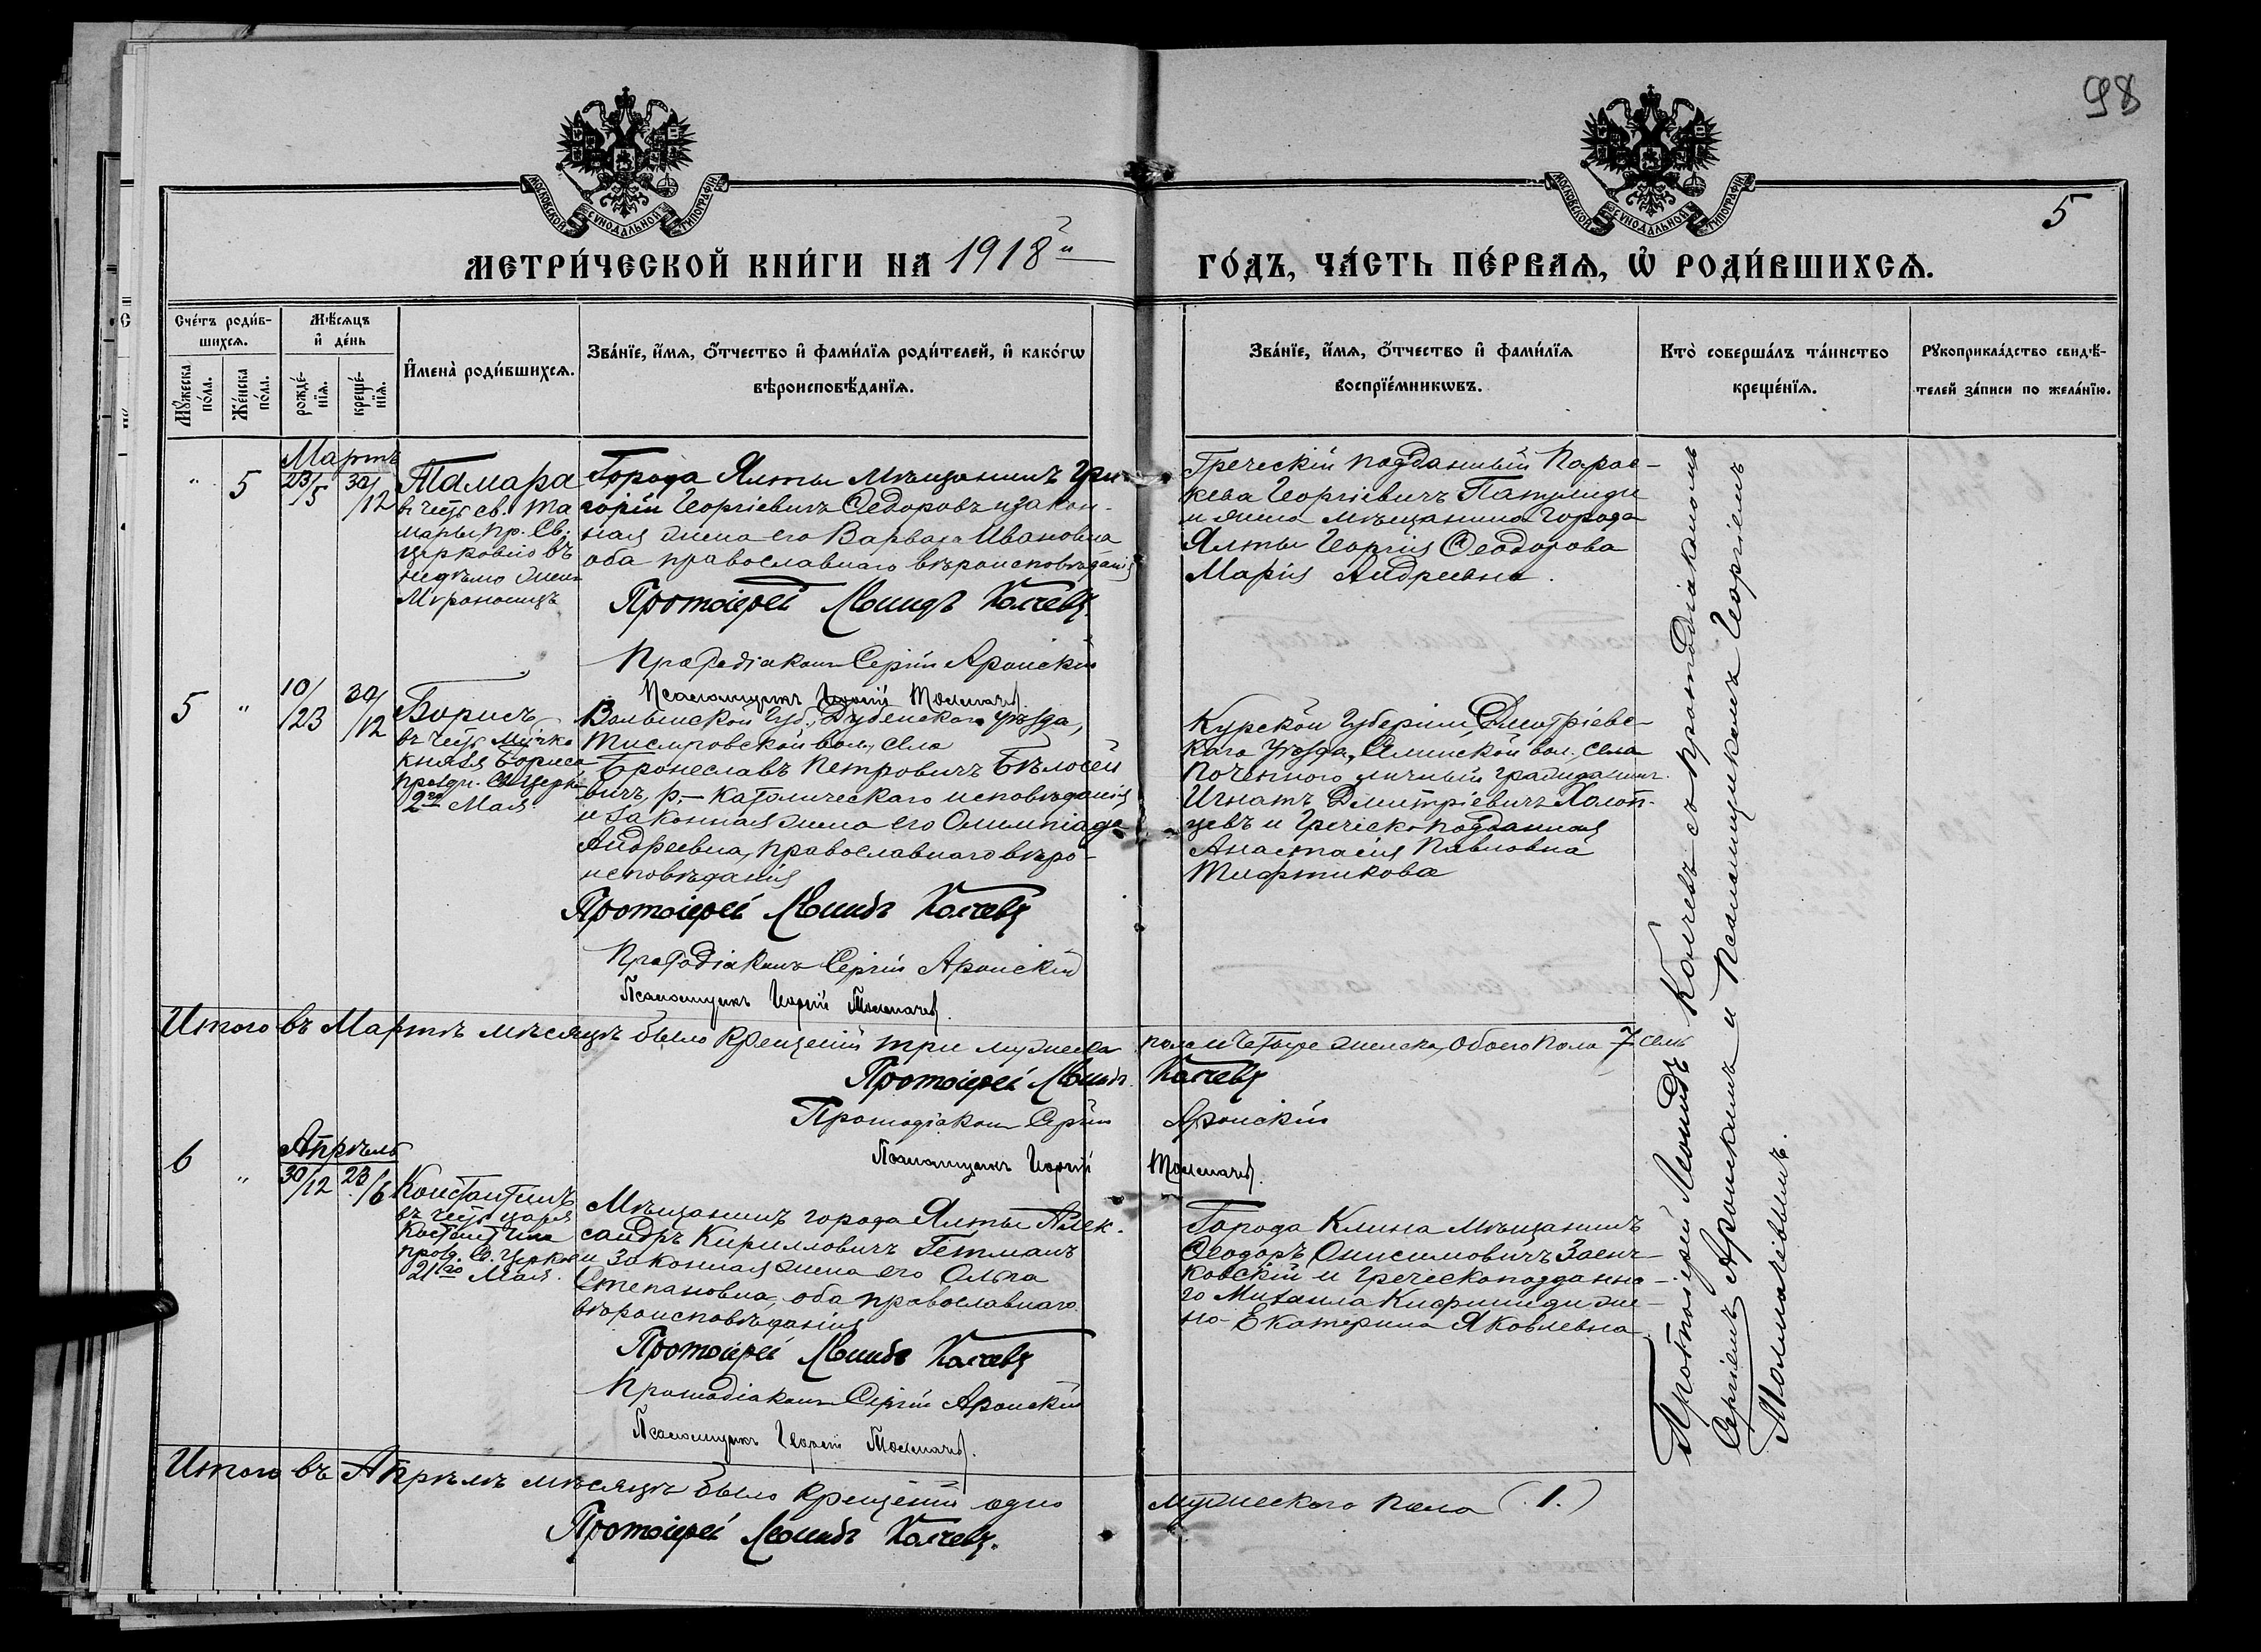 98
5
МОСКОВСКОЙ СѴНОДАЛЬНОЙ ТИПОГРАФІИ
МОСКОВСКОЙ СѴНОДАЛЬНОЙ ТИПОГРАФІИ
МЕТРИ́ЧЕСКОЙ КНИ́ГИ НА 1918й
ГО́ДЪ, ЧА́СТЬ ПЕ́РВАѦ, Ѽ РОДИ́ВШИХСѦ.
Сче́тъ роди́в-
шихсѧ.
Мѣ́сѧцъ
и҆ де́нь
Мꙋ́жеска
по́ла.
Же́нска
по́ла.
рожде́-
нїѧ.
креще́-
нїѧ.
И҆мена̀ роди́вшихсѧ.
Зва́нїе, и҆́мѧ, ѻ҆́тчество и҆ фами́лїѧ роди́телей, и҆ како́гѡ
вѣроисповѣ́данїѧ.
Зва́нїе, и҆́мѧ, ѻ҆́тчество и҆ фами́лїѧ
воспрїе́мникѡвъ.
Кто̀ соверша́лъ та́инство
креще́нїѧ.
Рꙋкоприкла́дство свидѣ́-
телей за́писи по жела́нїю.
Мартъ
" 5 23/5 30/12
Тамара
въ честь св. Та
мары, пр. Св.
церковію въ
недѣлю жен
Мѵроносицъ
Города Ялты мѣщанинъ Гри-
горій Георгіевичъ Ѳедоровъ и закон-
ная жена его Варвара Ивановна
оба православнаго вѣроисповѣданія
Протоіерей Леонидъ Колчевъ
Протодіаконъ Сергій Аронскій
Псаломщикъ Георгій Толмачевъ
Греческій подданный Парас-
кева Георгіевичъ Папулиди
и жена мѣщанина города
Ялты Георгія Ѳеодорова
Марія Андреевна.
5 " 10/23 30/12
Борисъ
въ честь Муч.
князя Бориса
праздн. Св. Церк
2го Мая
Волынской Губ., Дубенскаго уѣзда,
вол., села
Брониславъ Петровичъ Бѣлосе
вичъ, р.-католическаго исповѣданія
и законная жена его Олимпіада
Андреевна, православнаго вѣро-
исповѣданія
Протоіерей Леонидъ Колчевъ
Протодіаконъ Сергій Аронскій
Псаломщикъ Георгій Толмачевъ.
Курской губерніи, Дмитріевс-
каго уѣзда, вол., села
личный гражданинъ
Игнатъ Дмитріевичъ Холоп-
цевъ и Греческо-подданная
Анастасія Павловна
Тифтикова
Итого въ Мартѣ мѣсяцѣ было крещеній три мужеска пола и четыре женска, обоего пола 7 семь
Протоіерей Леонидъ Колчевъ
Протодіаконъ Сергій Аронскій
Псаломщикъ Георгій Толмачевъ.
Апрѣль
6 " 30/12 23/6
Константинъ
въ честь царя
Константина
празд. Св. Церков
21го Мая.
Мѣщанинъ города Ялты Алек-
сандръ Кирилловичъ Гетманъ
и законная жена его Ольга
Степановна, оба православнаго
вѣроисповѣданія
Протоіерей Леонидъ Колчевъ
Протодіаконъ Сергій Аронскій
Псаломщикъ Георгій Толмачевъ.
Города Клина мѣщанинъ
Ѳеодоръ Онисимовичъ Заенч-
ковскій и греческоподданна-
го Михаила же-
на Екатерина Яковлевна
Итого въ Апрѣлѣ мѣсяцѣ было крещеній одно мужескаго пола (1.)
Протоіерей Леонидъ Колчевъ.
Протоіерей Леонидъ Колчевъ съ протодіакономъ
Сергіемъ Аронскимъ и Псаломщикомъ Георгіемъ
Толмачевымъ.